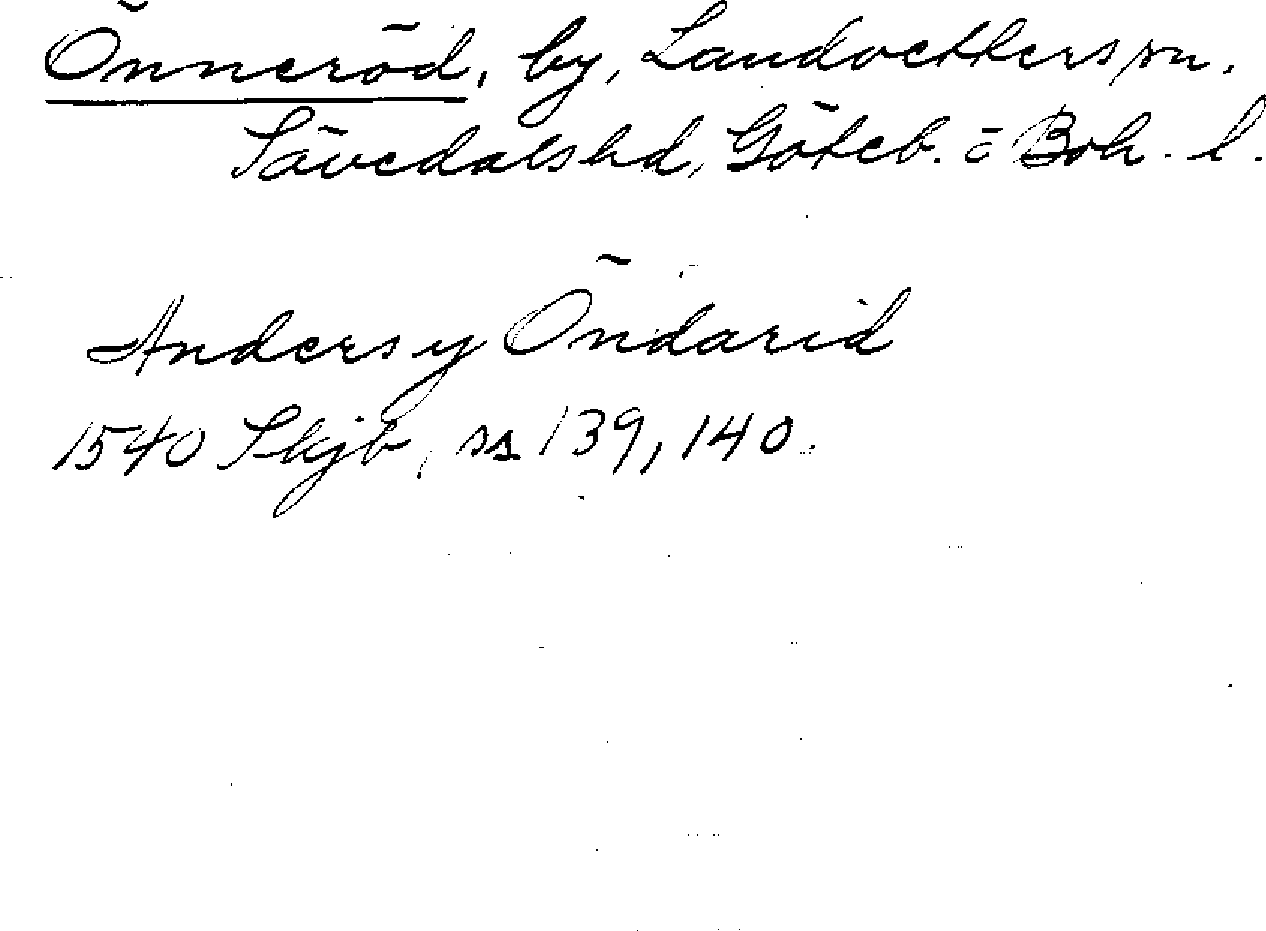 Önneröd, by, Landvetters sn.
Sävedals hd, Göteb. o Boh. l.
Anders y Öndarid
1540 Skjb, ss 139, 140.